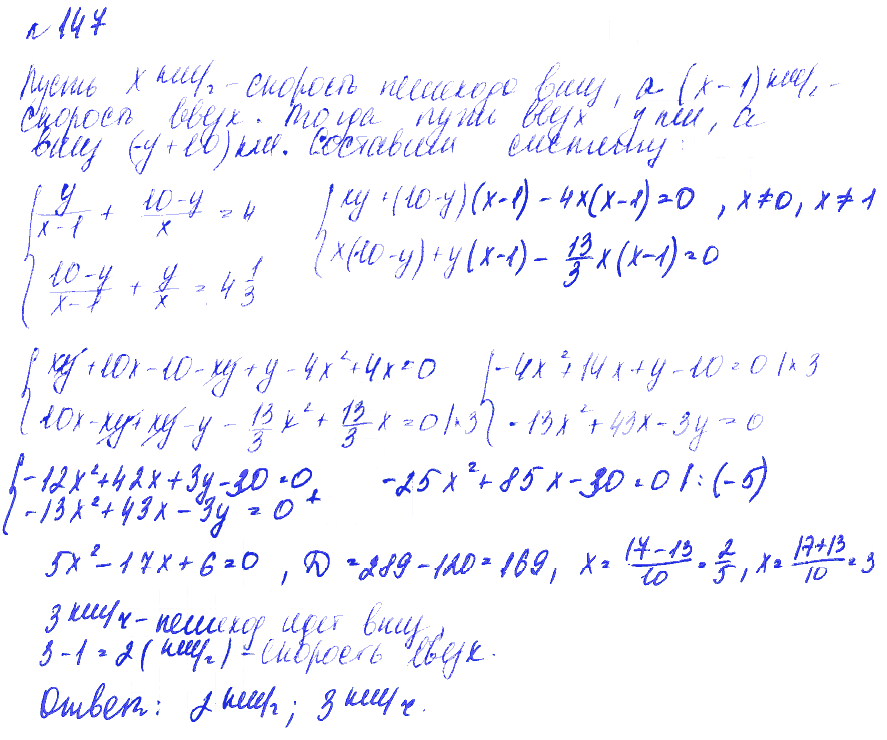 n 147
Пусть x км/ч - скорость пешехода вниз, а (x-1) км/ч -
скорость вверх. Тогда пути вверх y км, а
вниз (-y+10) км. Составим систему:
{ y/(x-1) + (10-y)/x = 4
{ (10-y)/(x-1) + y/x = 4 1/3
{ xy + (10-y)(x-1) - 4x(x-1) = 0 , x≠0, x≠1
{ x(10-y) + y(x-1) - 13/3 x(x-1) = 0
{ xy + 10x - 10 - xy + y - 4x² + 4x = 0
{ 10x - xy + xy - y - 13/3 x² + 13/3 x = 0 |×3
{ -4x² + 14x + y - 10 = 0 |×3
{ -13x² + 43x - 3y = 0
{ -12x² + 42x + 3y - 30 = 0
{ -13x² + 43x - 3y = 0 +
-25x² + 85x - 30 = 0 |: (-5)
5x² - 17x + 6 = 0 , D = 289 - 120 = 169, x = (17-13)/10 = 2/5, x = (17+13)/10 = 3
3 км/ч - пешеход идет вниз,
3 - 1 = 2 (км/ч) - скорость вверх.
Ответ: 2 км/ч; 3 км/ч.